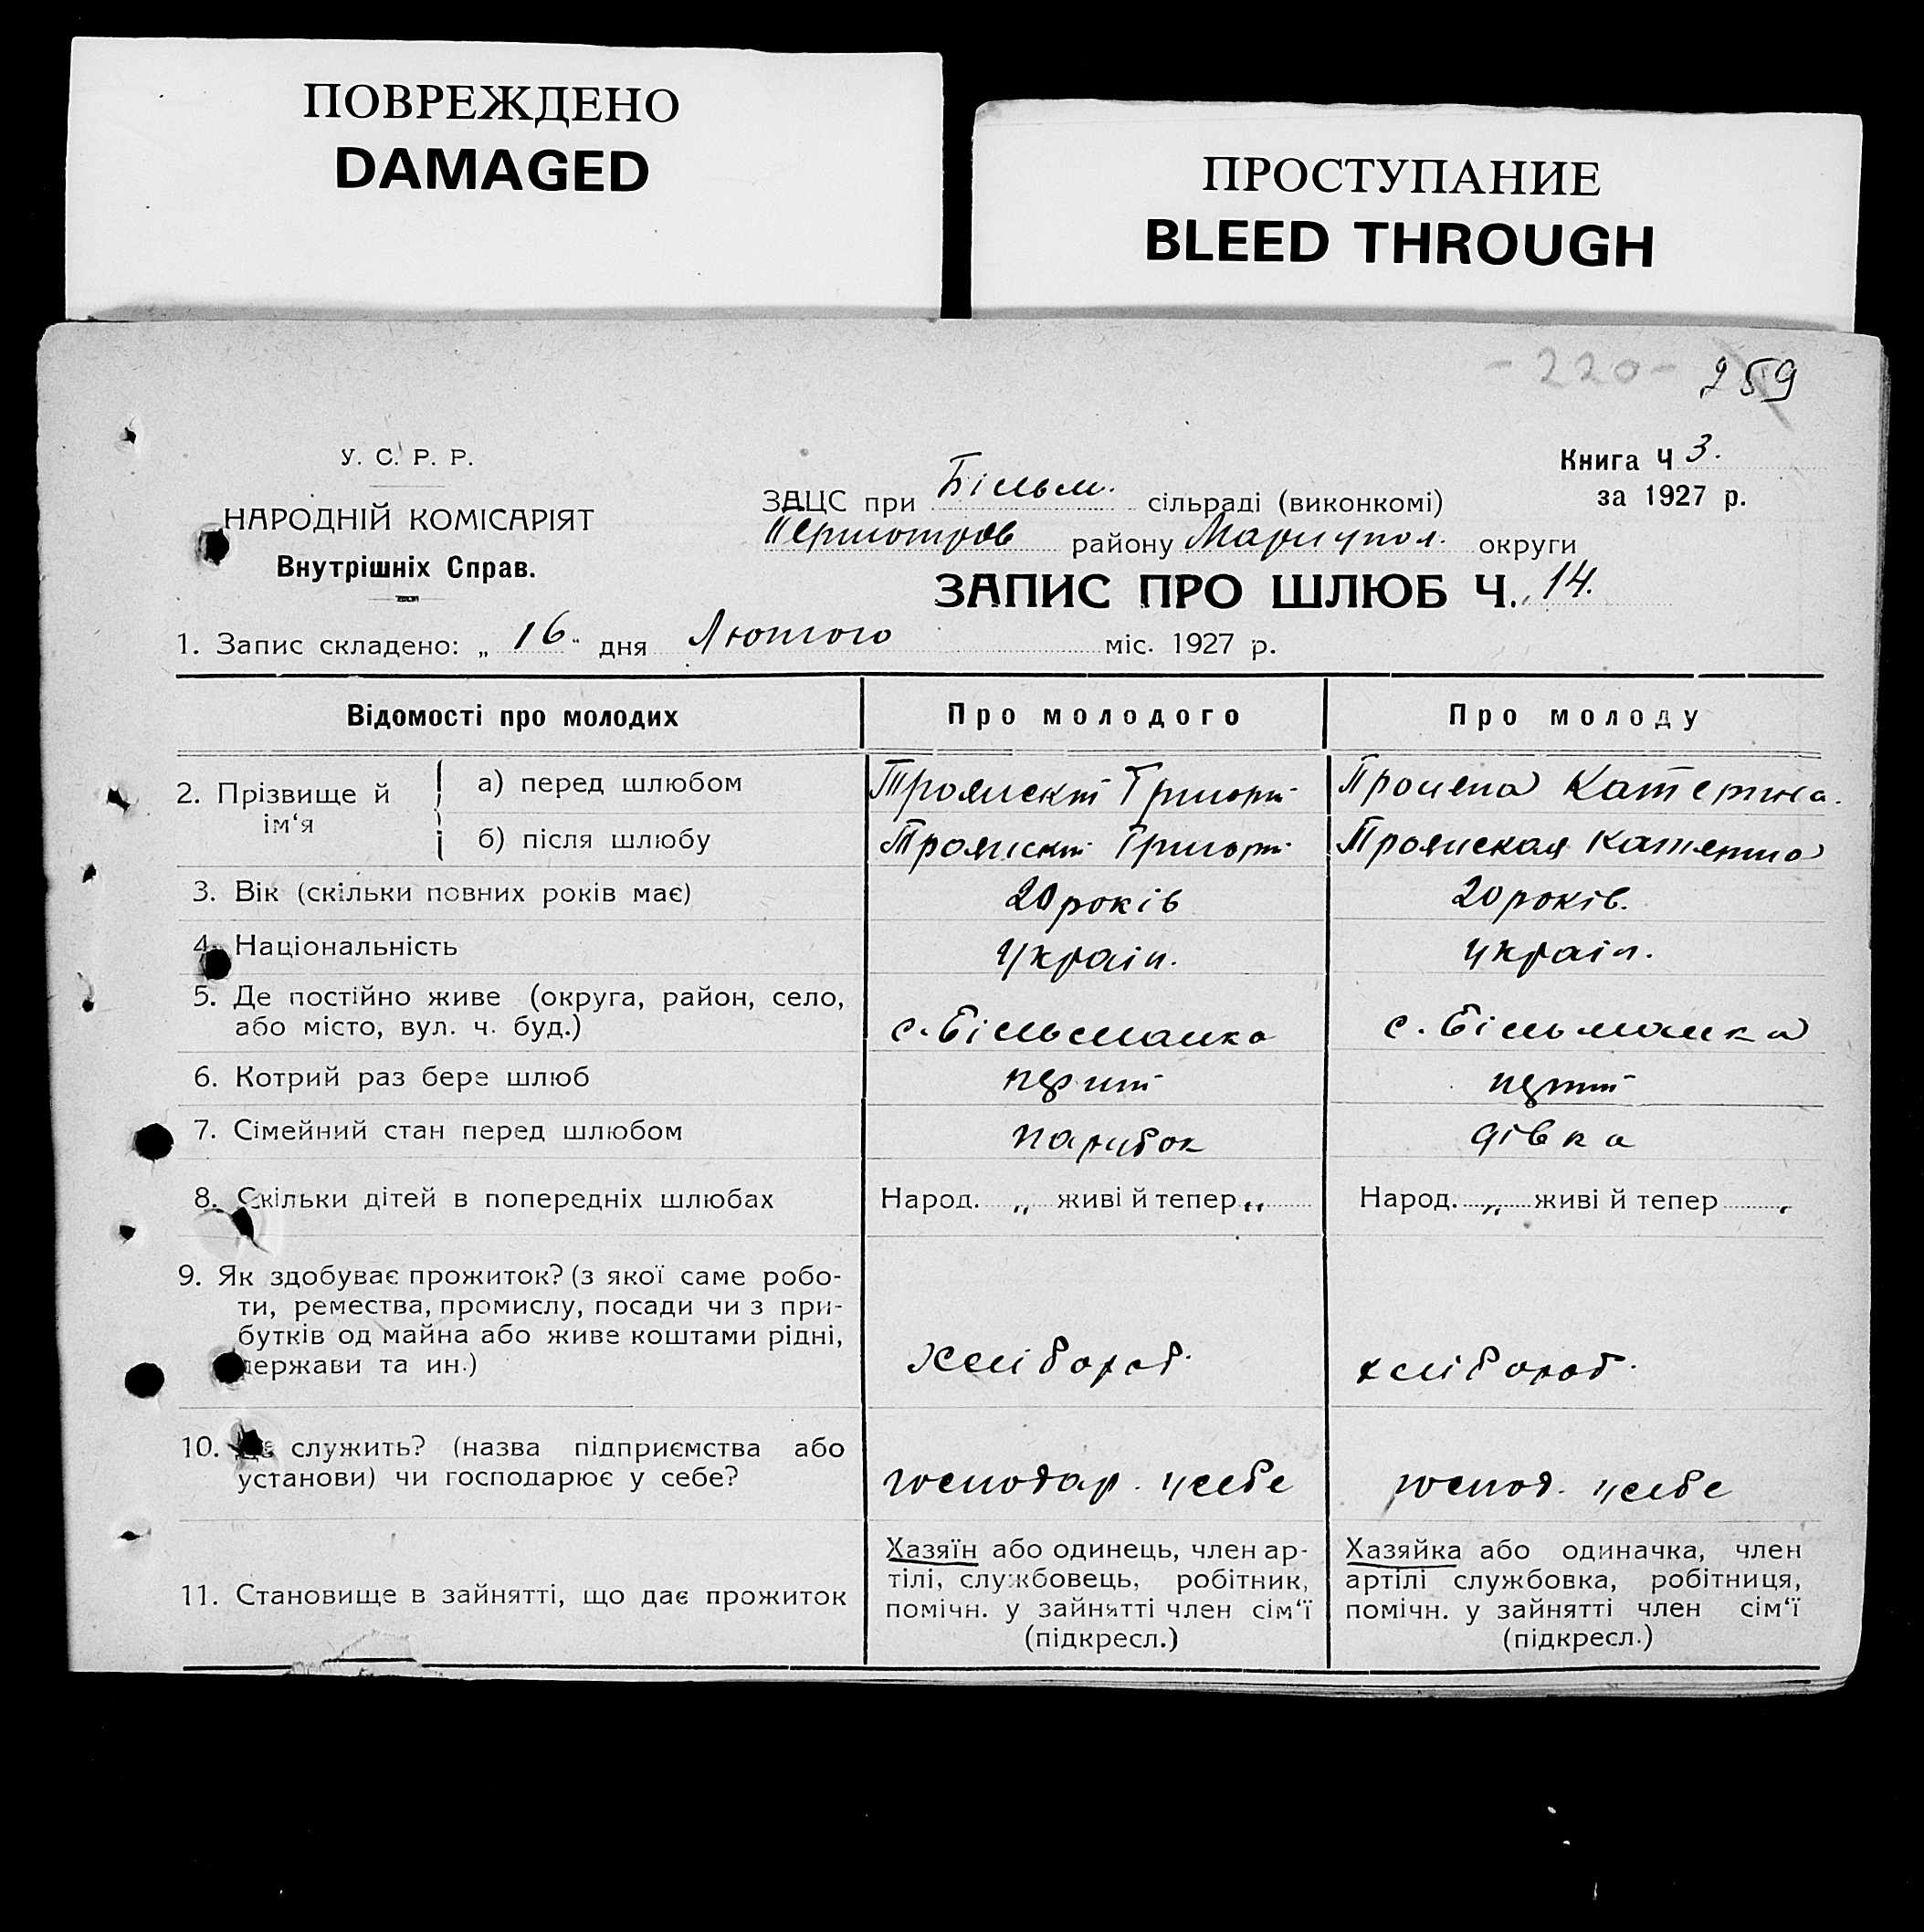 ПОВРЕЖДЕНО
DAMAGED
ПРОСТУПАНИЕ
BLEED THROUGH
- 220 - 259
У. С. Р. Р.
НАРОДНІЙ КОМІСАРІЯТ
Внутрішніх Справ.
Книга Ч 3.
за 1927 р.
ЗАЦС при Більм. сільраді (виконкомі)
району Маріупол. округи
ЗАПИС ПРО ШЛЮБ Ч. 14.
1. Запис складено: „ 16 " дня Лютого міс. 1927 р.
Відомості про молодих Про молодого Про молоду
2. Прізвище й ім‘я
а) перед шлюбом Троянскій Григорій Катерина
б) після шлюбу Троянскій Григорій Троянская Катерина
3. Вік (скільки повних років має) 20 років 20 років.
4. Національність україн. україн.
5. Де постійно живе (округа, район, село,
або місто, вул. ч. буд.) с. Більманка с. Більманка
6. Котрий раз бере шлюб перший перший
7. Сімейний стан перед шлюбом парубок дівка
8. Скільки дітей в попередніх шлюбах Народ. „ живі й тепер „ Народ. „ живі й тепер „
9. Як здобуває прожиток? (з якої саме робо-
ти, ремества, промислу, посади чи з при-
бутків од майна або живе коштами рідні,
держави та ин.) хлібороб. хлібороб.
10. Де служить? (назва підприємства або
установи) чи господарює у себе? господар. у себе господ. у себе
11. Становище в зайнятті, що дає прожиток
Хазяїн або одинець, член ар-
тілі, службовець, робітник,
помічн. у зайнятті член сім‘ї
(підкресл.)
Хазяйка або одиначка, член
артілі службовка, робітниця,
помічн. у зайнятті член сім‘ї
(підкресл.)